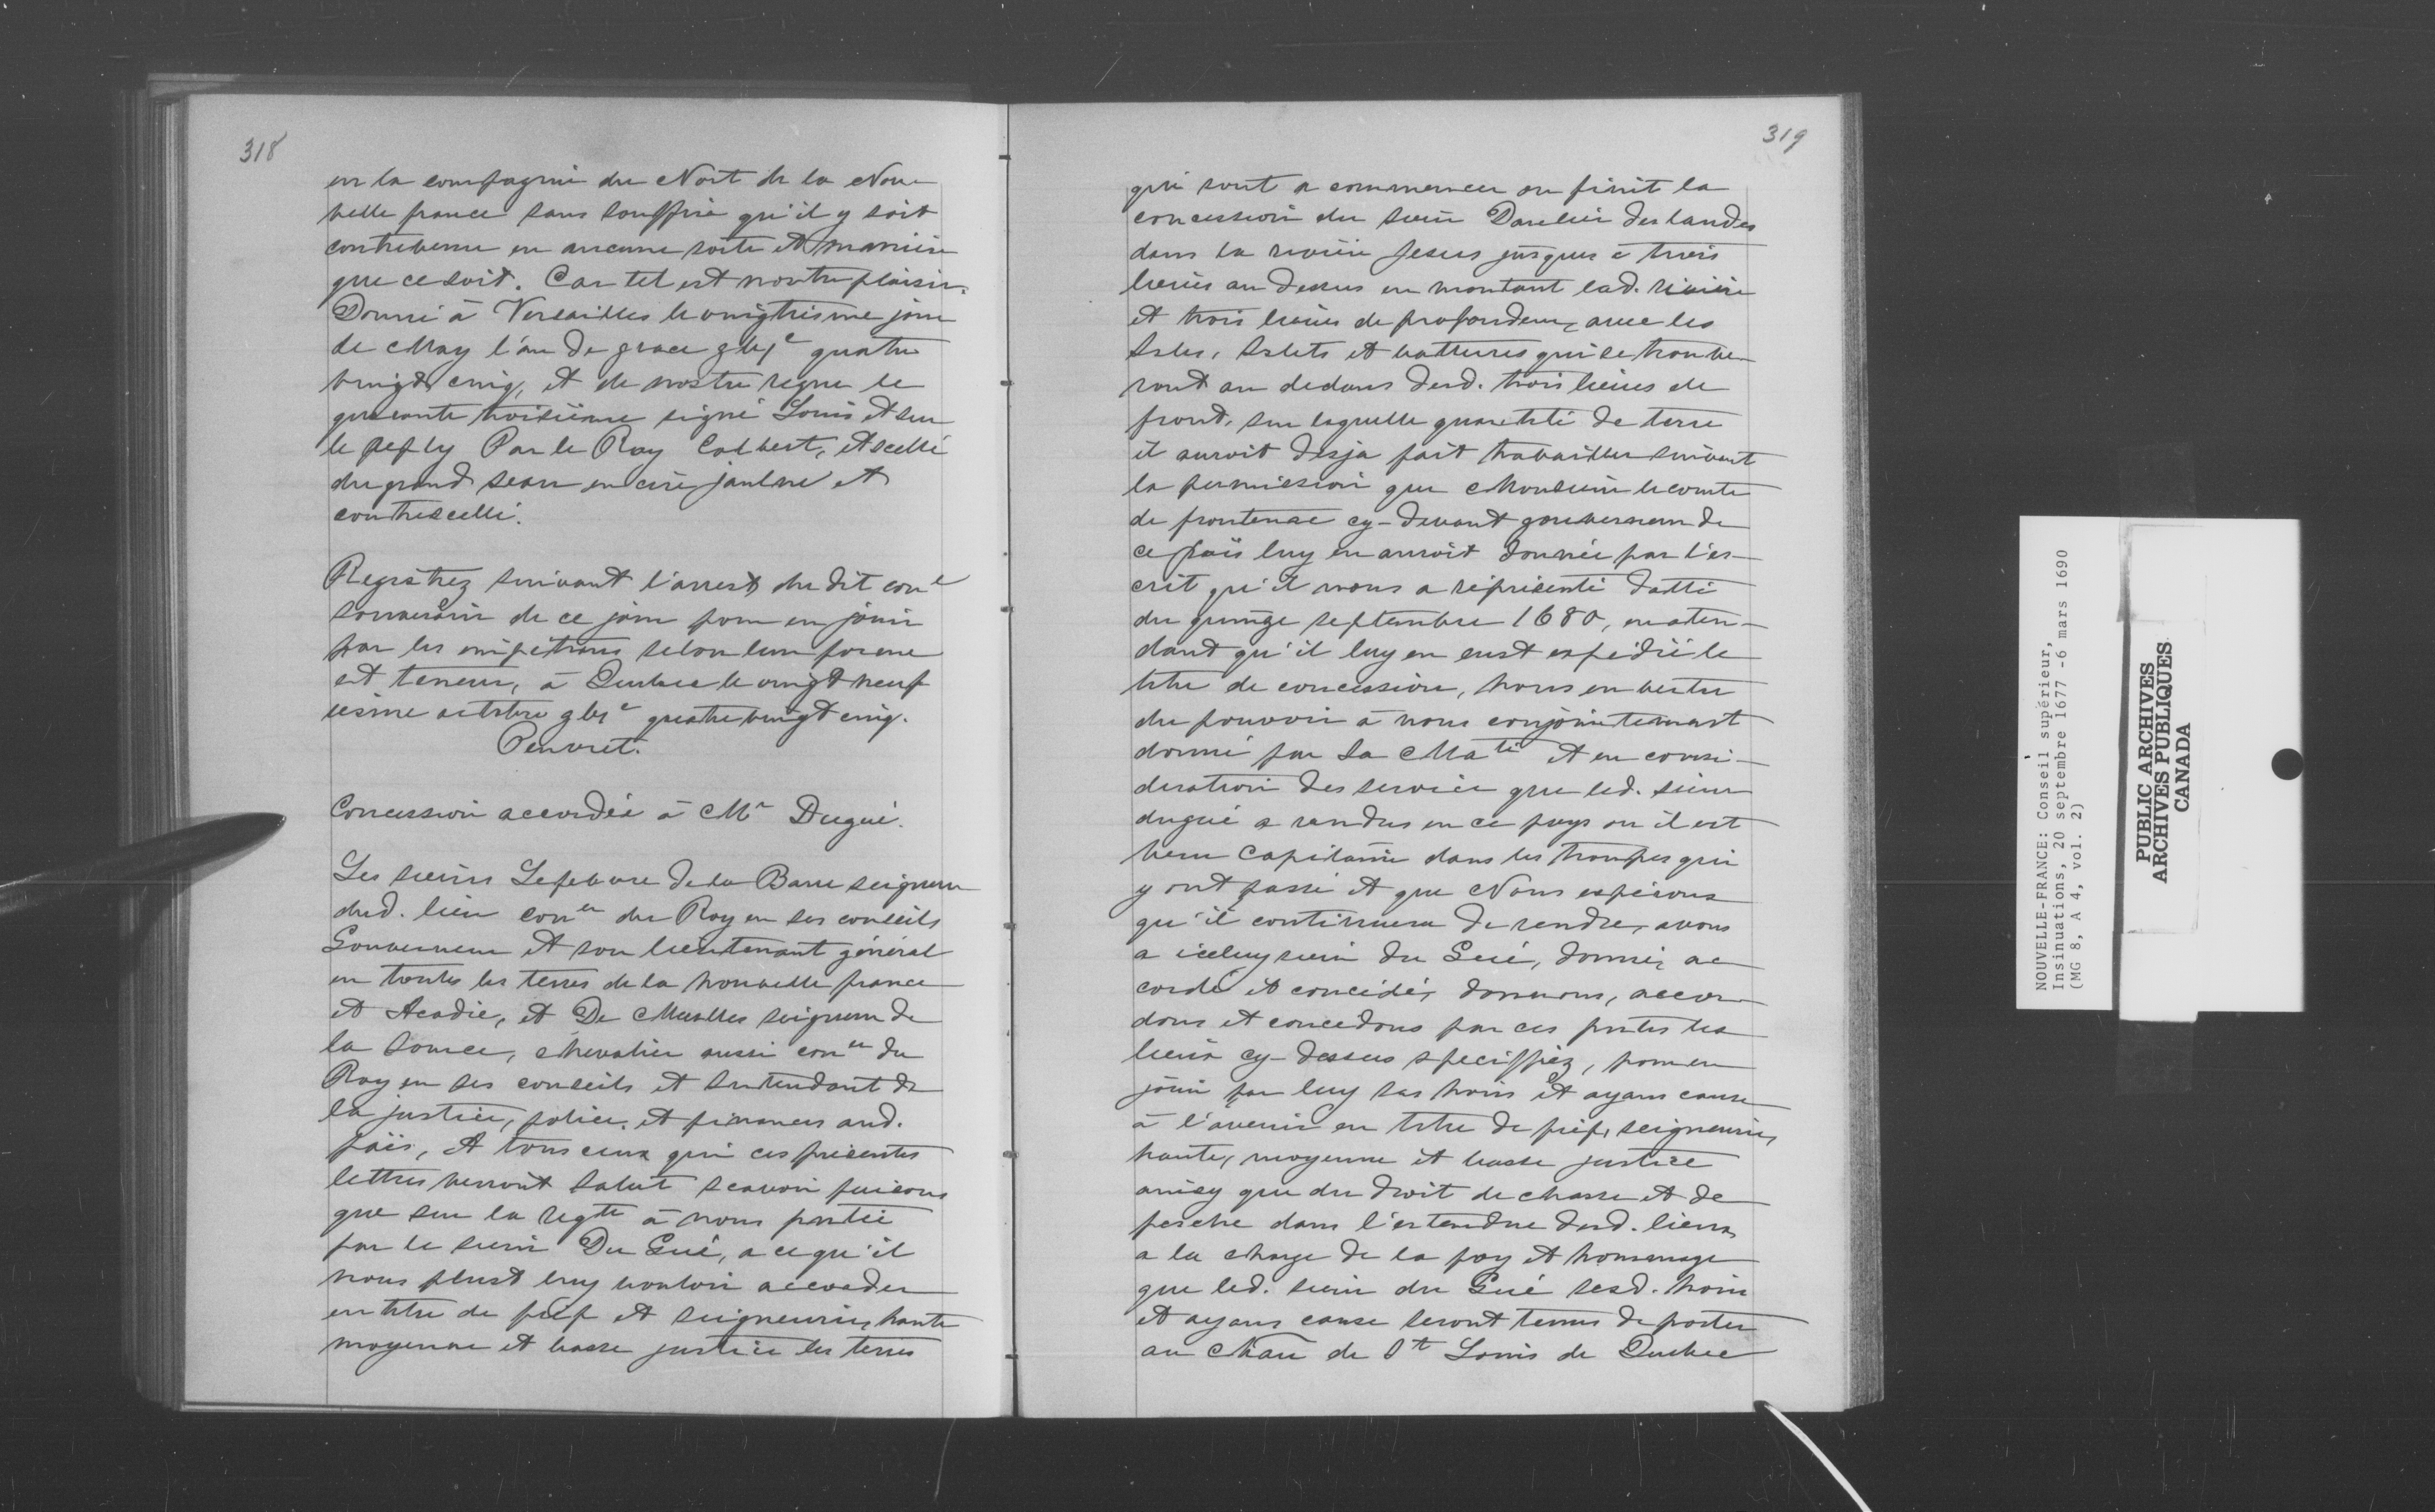 318
en la compagnie du Nort de la Nou-
velle france sans souffrir qu'il y soit
contrevenu en aucune sorte et maniere
que ce soit. Car tel est nostre plaisir.
Donné à Versailles le vingtiesme jour
de May l'an de grace gbjc quatre
vingt cinq, et de nostre regne le
quarante troisiéme signé Louis et sur
le reply Par le Roy Colbert, et scellé
du grand sceau en cire jaulne et
contrescellé.
Registrez suivant l'arrest du dit conel
souverain de ce jour pour en jouir
par les impetrans selon leur forme
et teneur, à Quebec le vingt neuf
iesme octobre gbjc quatre vingt cinq.
Peuvret.
Concession accordée à Mr Dugué.
Les sieurs Lefebvre de la Barre seigneur
dud. lieu coner du Roy en ses conseils
Gouverneur et son lieutenant général
en toutes les terres de la nouvelle france
et Acadie, et De Meulles seigneur de
la Source, chevalier aussi coner du
Roy en ses conseils et Intendant de
la justice, police, et finances aud.
païs, A tous ceux qui ces présentes
lettres verront Salut scavoir faisons
que sur la reqte à nous portée
par le sieur Du Gué, a ce qu'il
nous plust luy vouloir accorder
en titre de fief et seigneurie, haute
moyenne et basse justice les terres
319
qui sont a commencer ou finit la
concession du sieur Daulier deslandes
dans la riviere Jesus jusques à trois
lieües au dessus en montant lad. riviere
et trois lieües de profondeur, avec les
Isles, Islets et batteures qui se trouve-
ront au dedans desd. trois lieües de
front, sur laquelle quantité de terre
il auroit desja fait travailler suivant
la permission que Monsieur le comte
de frontenac cy-devant gouverneur de
ce païs luy en auroit donnée par l'es-
crit qu'il nous a réprésenté datté
du quinze septembre 1680, en aten-
dant qu'il luy en eust expédié le
titre de concession, Nous en vertu
du pouvoir à nous conjointement
donné par Sa Maté et en consi-
deration des service que led. sieur
dugué a rendus en ce pays ou il est
venu Capitaine dans les troupes qui
y ont passé et que Nous espérons
qu'il continuera de rendre, avons
a icelluy sieur du Gué, donné, ac
cordé et concédé, donnons, accor-
dons et concedons par ces pntes les
lieux cy-dessus speciffiez, pour en
jouir par luy ses hoirs et ayans cause
à l'avenir en titre de fief, seigneurie,
haute, moyenne et basse justice
ainsy que du droit de chasse et de
pesche dans l'estendue desd. lieux
a la charge de la foy et hommage
que led. sieur du Gué sesd. hoirs
et ayans cause seront tenus de porter
au Chaū de St Louis de Quebec
NOUVELLE-FRANCE: Conseil supérieur,
Insinuations, 20 septembre 1677 -6 mars 1690
(MG 8, A 4, vol. 2)
PUBLIC ARCHIVES
ARCHIVES PUBLIQUES
CANADA